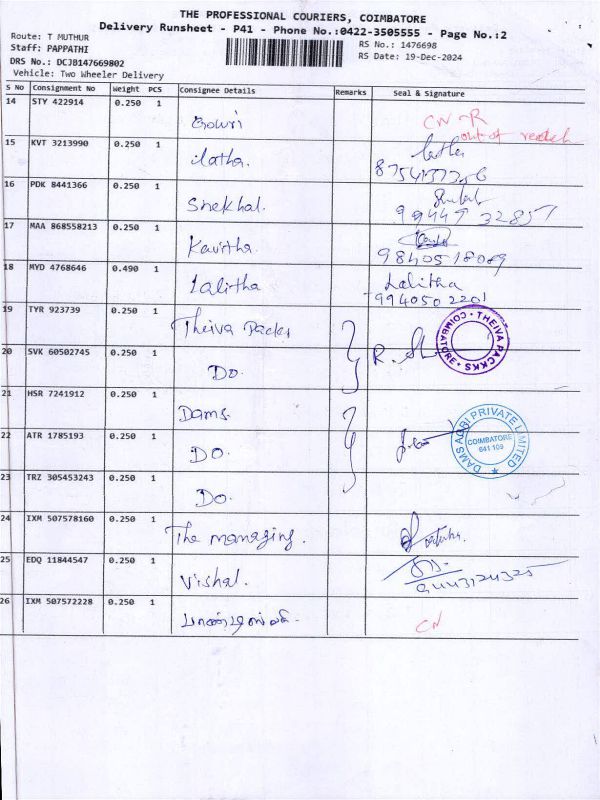 THE PROFESSIONAL COURIERS, COIMBATORE
Delivery Runsheet - P41 - Phone No.:0422-3505555 - Page No.:2
Route: T MUTHUR
Staff: PAPPATHI
DRS No.: DCJB147669802
Vehicle: Two Wheeler Delivery
RS No.: 1476698
RS Date: 19-Dec-2024
S No Consignment No Weight PCS Consignee Details Remarks Seal & Signature
14 STY 422914 0.250 1 Gowri CN - R
out of reach
15 KVT 3213990 0.250 1 Latha.
16 PDK 8441366 0.250 1 Shekhal.
99447 32851
17 MAA 868558213 0.250 1 Kavitha.
9840518089
18 MYD 4768646 0.490 1 Lalitha Lalitha
9940502201
19 TYR 923739 0.250 1 Theiva Packs
THEIVA PACKKS COIMBATORE
20 SVK 60502745 0.250 1 DO.
21 HSR 7241912 0.250 1 Dams.
22 ATR 1785193 0.250 1 DO.
DAMS AGRI PRIVATE LIMITED
COIMBATORE
641 109
23 TRZ 305453243 0.250 1 DO.
24 IXM 507578160 0.250 1 The managing.
25 EDQ 11844547 0.250 1 Vishal.
9443124325
26 IXM 507572228 0.250 1 CN